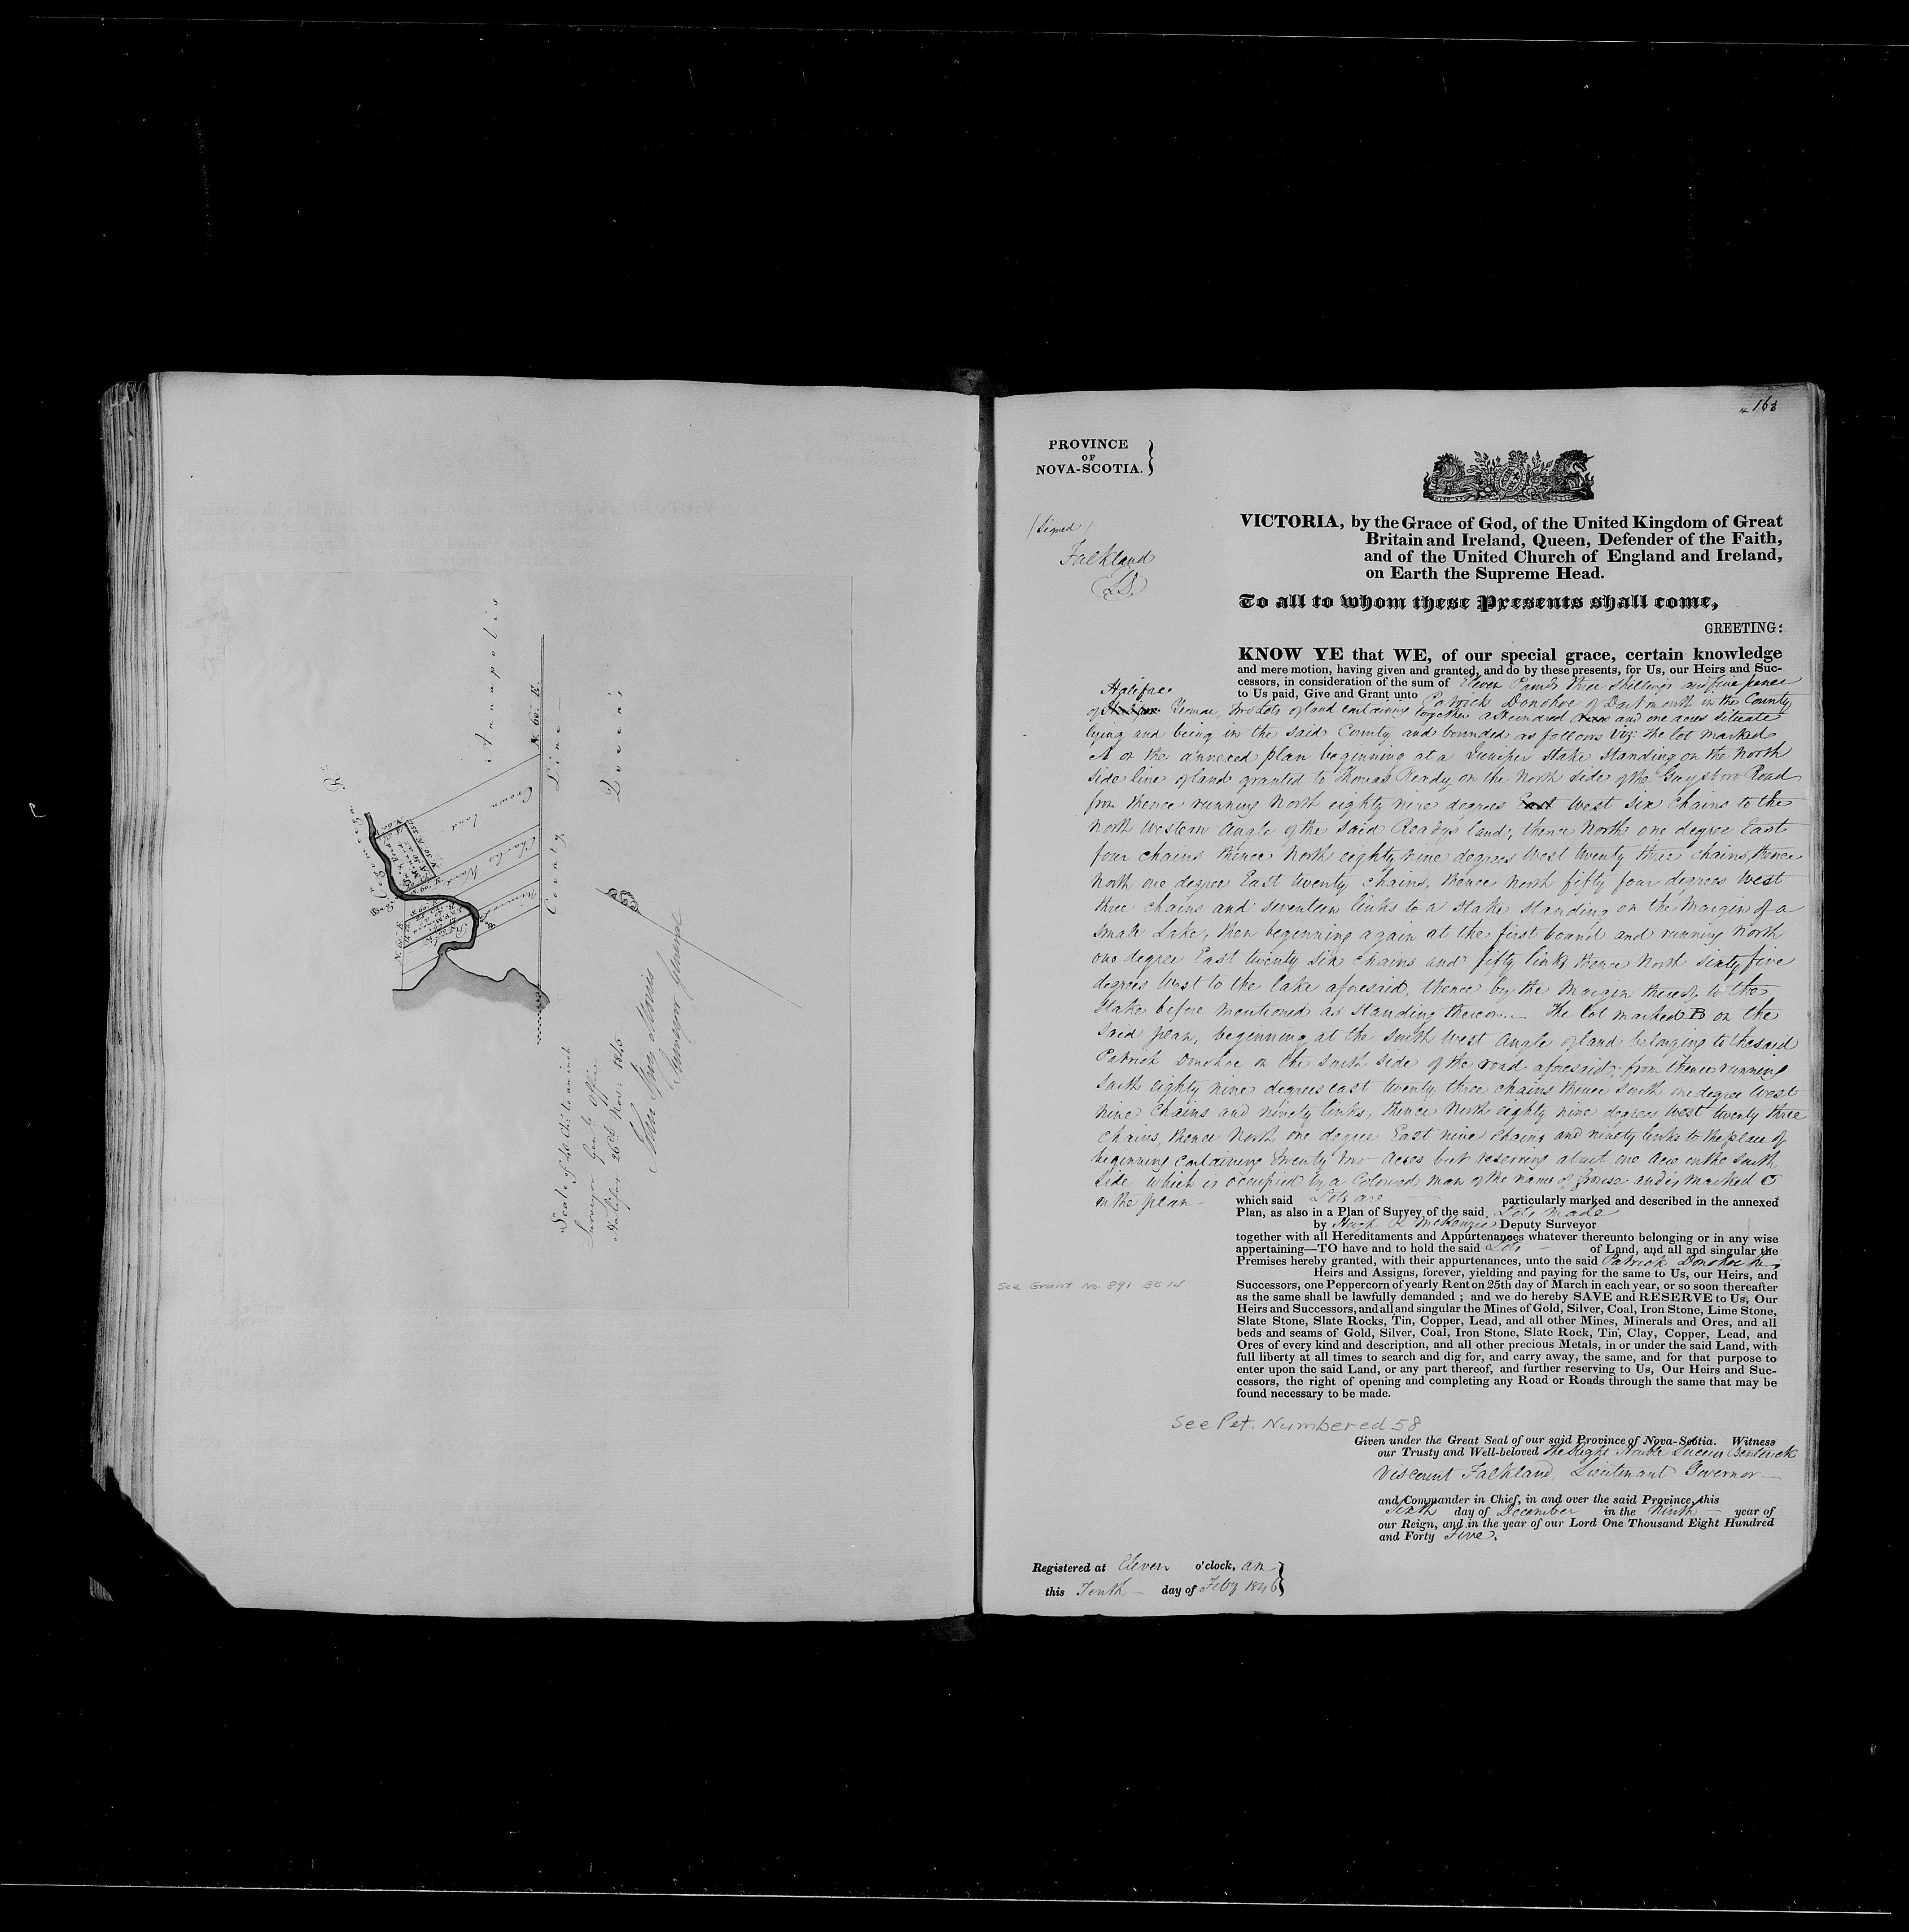 Annapolis
N. 60. W.
County Line
Queen's
Crown Land
Charles Ward
Scale of 40 Chs to an inch
Surveyor Genls Office
Halifax 26th Novr 1845
John Spry Morris
Surveyor General
163
PROVINCE
OF
NOVA-SCOTIA.
(Signed)
Falkland
LS.
VICTORIA, by the Grace of God, of the United Kingdom of Great
Britain and Ireland, Queen, Defender of the Faith,
and of the United Church of England and Ireland,
on Earth the Supreme Head.
To all to whom these Presents shall come,
GREETING:
KNOW YE that WE, of our special grace, certain knowledge
and mere motion, having given and granted, and do by these presents, for Us, our Heirs and Suc-
cessors, in consideration of the sum of Eleven Pounds three shillings and five pence
to Us paid, Give and Grant unto Patrick Donohoe of Dartmouth in the County
Halifax
of Yeoman, two Lots of land containing together a Hundred and one acres situate
lying and being in the said County and bounded as follows Viz: the lot marked
A on the annexed plan beginning at a Juniper Stake standing on the North
side line of land granted to Thomas Ready on the North side of the Guysboro Road
from thence running North eighty nine degrees East West six chains to the
North Western Angle of the said Readys land; thence North one degree East
four chains thence North eighty nine degrees West twenty three chains, thence
North one degree East twenty chains, thence North fifty four degrees West
three chains and seventeen links to a stake standing on the Margin of a
small Lake, then beginning again at the first bound and running North
one degree East twenty six chains and fifty links thence North sixty five
degrees West to the lake aforesaid, thence by the Margin thereof to the
stake before mentioned as standing thereon. The lot marked B on the
said plan, beginning at the South West Angle of land belonging to the said
Patrick Donohoe on the South side of the road aforesaid, from thence running
South eighty nine degrees East twenty three chains thence South one degree West
nine chains and ninety links, thence North eighty nine degrees West twenty three
chains, thence North one degree East nine chains and ninety links to the place of
beginning containing twenty two acres but reserving about one acre on the South
side which is occupied by a Coloured man of the name of and is marked C
on the plan
which said Lots are particularly marked and described in the annexed
Plan, as also in a Plan of Survey of the said Lots made
by Hugh R McKenzie Deputy Surveyor
together with all Hereditaments and Appurtenances whatever thereunto belonging or in any wise
appertaining—TO have and to hold the said Lots of Land, and all and singular the
Premises hereby granted, with their appurtenances, unto the said Patrick Donohoe his
Heirs and Assigns, forever, yielding and paying for the same to Us, our Heirs, and
Successors, one Peppercorn of yearly Rent on 25th day of March in each year, or so soon thereafter
as the same shall be lawfully demanded; and we do hereby SAVE and RESERVE to Us, Our
Heirs and Successors, and all and singular the Mines of Gold, Silver, Coal, Iron Stone, Lime Stone,
Slate Stone, Slate Rocks, Tin, Copper, Lead, and all other Mines, Minerals and Ores, and all
beds and seams of Gold, Silver, Coal, Iron Stone, Slate Rock, Tin, Clay, Copper, Lead, and
Ores of every kind and description, and all other precious Metals, in or under the said Land, with
full liberty at all times to search and dig for, and carry away, the same, and for that purpose to
enter upon the said Land, or any part thereof, and further reserving to Us, Our Heirs and Suc-
cessors, the right of opening and completing any Road or Roads through the same that may be
found necessary to be made.
See Grant No. 891 Bk 14
See Pet. Numbered 58
Given under the Great Seal of our said Province of Nova-Scotia. Witness
our Trusty and Well-beloved The Right Honble Lucius Bentinck
Viscount Falkland, Lieutenant Governor
and Commander in Chief, in and over the said Province, this
day of December in the Ninth year of
our Reign, and in the year of our Lord One Thousand Eight Hundred
and Forty Five.
Registered at Eleven o'clock, am
this Tenth day of Feby 1846